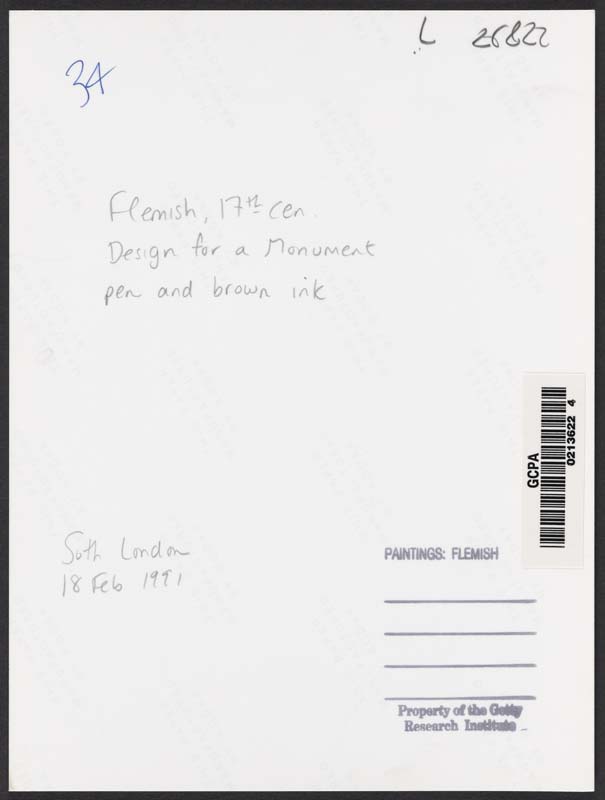 L 26822
34
Flemish, 17th cen.
Design for a Monument
pen and brown ink
GCPA
0213622 4
Soth London
18 Feb 1991
PAINTINGS: FLEMISH
Property of the Getty
Research Institute